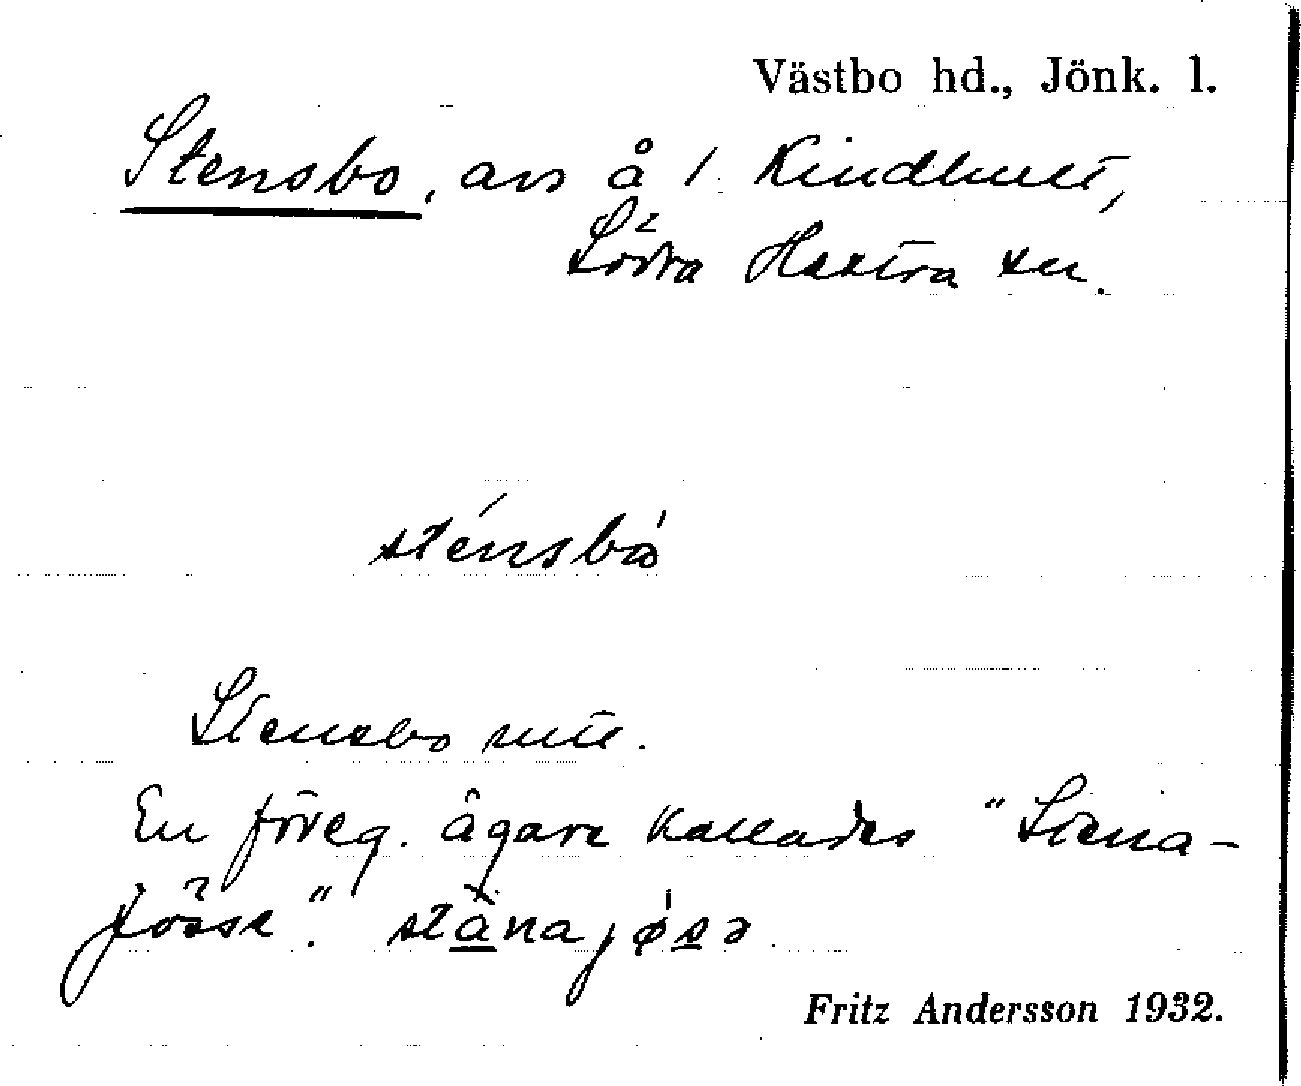 Västbo hd., Jönk. l.
Stensbo, avs å 1 Kindhult,
Södra Hestra sn.
sténsbó
Stensbo mtl.
En föreg. ägare kallades "Stena-
jösse." stänajøsə
Fritz Andersson 1932.